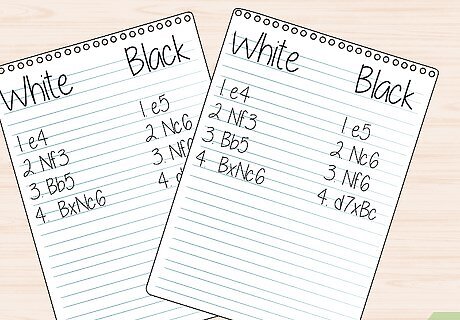 White Black
1 e4 1 e5
2 Nf3 2 Nc6
3. Bb5 3 Nf
4. BxNc6 4. d
White Black
1 e4 1 e5
2 Nf3 2 Nc6
3. Bb5 3 Nf6
4 BxNc6 4. d7xBc